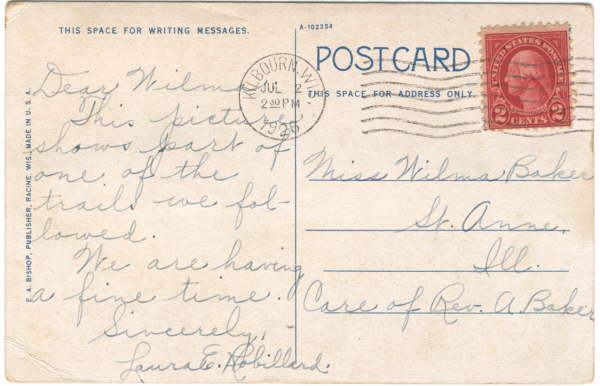 THIS SPACE FOR WRITING MESSAGES.
A-102354
POSTCARD
THIS SPACE FOR ADDRESS ONLY.
UNITED STATES POSTAGE
2 CENTS 2
KILBOURN, WI
JUL 2
2 30 PM
1926
Dear Wilma
This picture
shows part of
one of the
trails we fol-
lowed.
We are having
a fine time.
Sincerely,
Laura E. Robillard.
Miss Wilma Baker
St. Anne,
Ill.
Care of Rev. A. Baker
E. A. BISHOP, PUBLISHER, RACINE, WIS., MADE IN U. S. A.